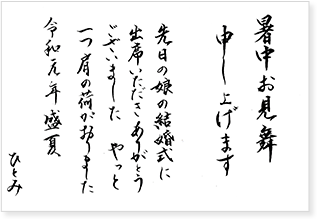 暑中お見舞
申し上げます
先日の娘の結婚式に
出席いただきありがとう
ございました やっと
一つ肩の荷がおりました
令和元年盛夏
ひとみ